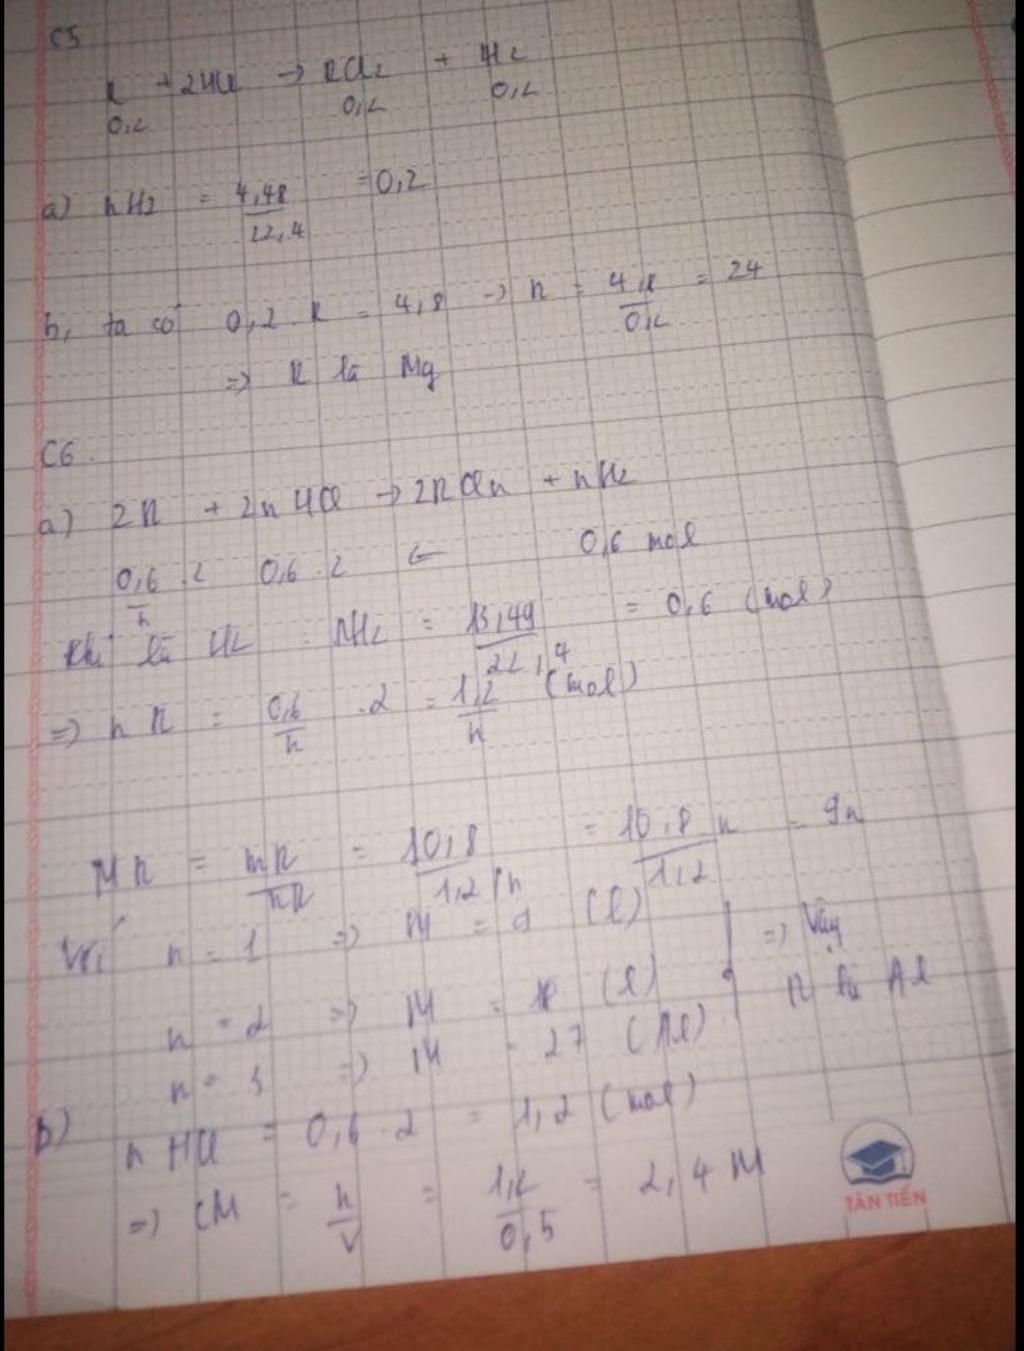 C5
R + 2HCl → RCl₂ + H₂
0,2 0,2 0,2
a) nH₂ = 4,48/22,4 = 0,2
b, ta có 0,2 . R = 4,8 → R = 4,8/0,2 = 24
=> R là Mg
C6.
a) 2R + 2nHCl → 2RCln + nH₂
0,6/n . 2 0,6 . 2 ← 0,6 mol
Khí là H₂ : nH₂ = 13,44/22,4 = 0,6 (mol)
=> nR = 0,6/n . 2 = 1,2/n (mol)
MR = mR/nR = 10,8/1,2/n = 10,8n/1,2 = 9n
Với n = 1 => M = 9 (l)
n = 2 => M = 18 (l)
n = 3 => M = 27 (Al)
=> Vậy
R là Al
b)
nHCl = 0,6 . 2 = 1,2 (mol)
=> CM = n/V = 1,2/0,5 = 2,4M
TÂN TIẾN